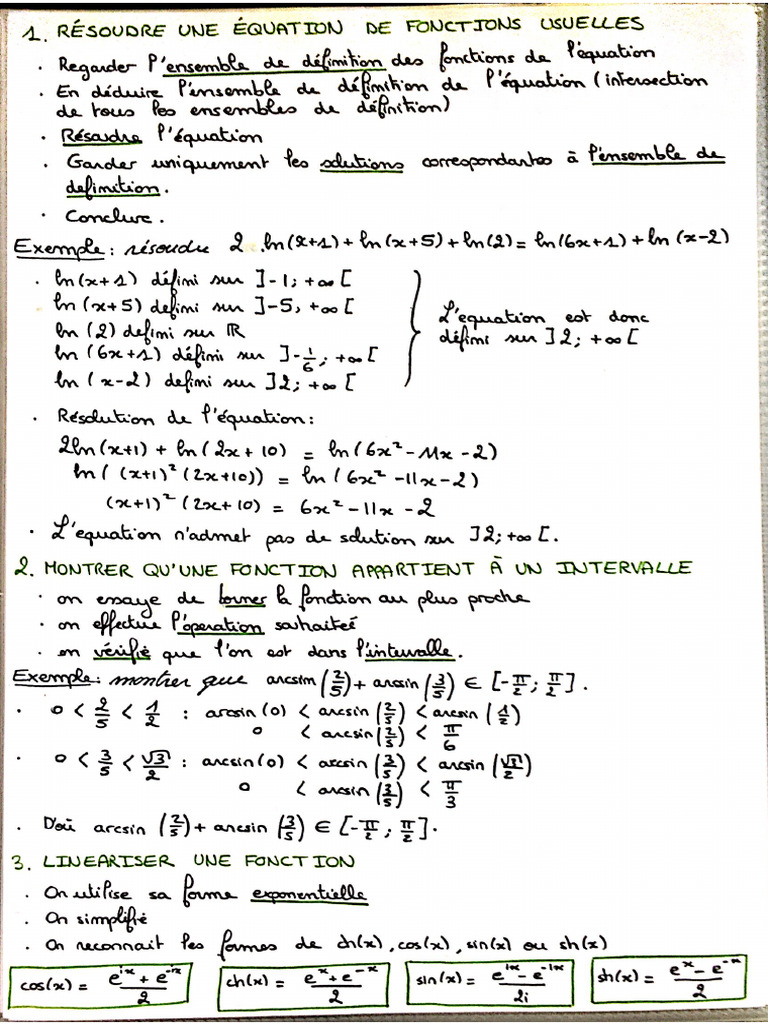 1. RÉSOUDRE UNE ÉQUATION DE FONCTIONS USUELLES
· Regarder l'ensemble de définition des fonctions de l'équation
· En déduire l'ensemble de définition de l'équation (intersection
de tous les ensembles de définition)
· Résoudre l'équation
· Garder uniquement les solutions correspondantes à l'ensemble de
definition.
· Conclure.
Exemple : résoudre 2 .ln(x+1) + ln(x+5) + ln(2) = ln(6x+1) + ln(x-2)
· ln(x+1) défini sur ]-1; +∞[
ln(x+5) defini sur ]-5, +∞[
ln(2) defini sur ℝ
ln(6x+1) défini sur ]-1/6; +∞[
ln(x-2) defini sur ]2; +∞[
L'equation est donc
défini sur ]2; +∞[
· Résolution de l'équation :
2ln(x+1) + ln(2x+10) = ln(6x²-11x-2)
ln((x+1)²(2x+10)) = ln(6x²-11x-2)
(x+1)²(2x+10) = 6x²-11x-2
· L'equation n'admet pas de solution sur ]2;+∞[.
2. MONTRER QU'UNE FONCTION APPARTIENT À UN INTERVALLE
· on essaye de borner la fonction au plus proche
· on effectue l'operation souhaiteé
· on vérifie que l'on est dans l'intervalle.
Exemple : montrer que arcsin(2/5) + arcsin(3/5) ∈ [-π/2; π/2].
· 0 < 2/5 < 1/2 : arcsin(0) < arcsin(2/5) < arcsin(1/2)
0 < arcsin(2/5) < π/6
· 0 < 3/5 < √3/2 : arcsin(0) < arcsin(3/5) < arcsin(√3/2)
0 < arcsin(3/5) < π/3
· D'où arcsin(2/5) + arcsin(3/5) ∈ [-π/2; π/2].
3. LINEARISER UNE FONCTION
· On utilise sa forme exponentielle
· On simplifié
· On reconnait les formes de ch(x), cos(x), sin(x) ou sh(x)
cos(x) = (e^ix + e^-ix)/2 ch(x) = (e^x + e^-x)/2 sin(x) = (e^ix - e^-ix)/2i sh(x) = (e^x - e^-x)/2